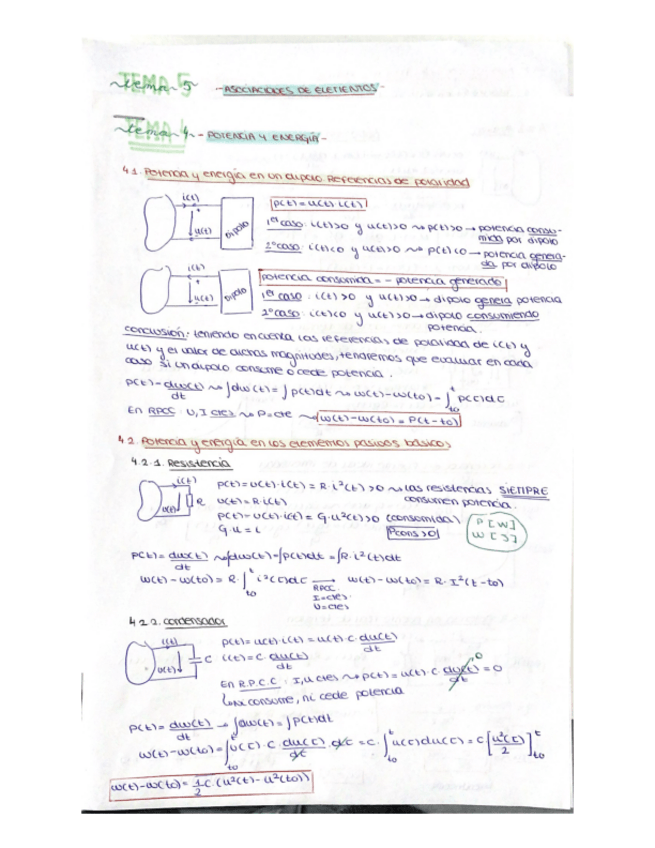 ~tema~ 5 - ASOCIACIONES DE ELEMENTOS -
~tema~ 4 - POTENCIA Y ENERGÍA -
4.1. Potencia y energía en un dipolo. Referencias de polaridad
i(t)
u(t)
Dipolo
p(t) = u(t)·i(t)
1er caso: i(t)>0 y u(t)>0 ⇝ p(t)>0 → potencia consu-
mida por dipolo
2º caso: i(t)<0 y u(t)>0 ⇝ p(t)<0 → potencia genera-
da por dipolo
i(t)
u(t)
Dipolo
potencia consumida = - potencia generada
1er caso: i(t)>0 y u(t)>0 → dipolo genera potencia
2º caso: i(t)<0 y u(t)>0 → dipolo consumiendo
potencia.
conclusión: teniendo en cuenta las referencias de polaridad de i(t) y
u(t) y el valor de dichas magnitudes, tendremos que evaluar en cada
caso si un dipolo consume o cede potencia.
p(t) = dw(t)/dt ⇝ ∫dw(t) = ∫p(t)dt ⇝ w(t)-w(to) = ∫_to^t p(τ)dτ
En RPCC: U, I ctes ⇝ P=cte ⇝ w(t)-w(to) = P(t-to)
4.2. Potencia y energía en los elementos pasivos básicos
4.2.1. Resistencia
i(t)
u(t)
R
p(t) = u(t)·i(t) = R·i²(t) >0 ⇝ las resistencias SIEMPRE
consumen potencia.
u(t) = R·i(t)
p(t) = u(t)·i(t) = G·u²(t)>0 (consumida)
G·u = i
Pcons >0
P [W]
W [J]
p(t) = dw(t)/dt ⇝ ∫dw(t) = ∫p(t)dt = ∫R·i²(t)dt
w(t)-w(to) = R·∫_to^t i²(τ)dτ → w(t)-w(to) = R·I²(t-to)
RPCC
I=ctes
U=ctes
4.2.2. condensador
i(t)
u(t)
C
p(t) = u(t)·i(t) = u(t)·C·du(t)/dt
i(t) = C·du(t)/dt
En R.P.C.C: I,U ctes ⇝ p(t) = u(t)·C·du(t)/dt = 0
0
Ni consume, ni cede potencia
p(t) = dw(t)/dt → ∫dw(t) = ∫p(t)dt
w(t)-w(to) = ∫_to^t u(τ)·C·du(τ)/dτ·dτ = C·∫_to^t u(τ)du(τ) = C[u²(τ)/2]_to^t
w(t)-w(to) = 1/2 C·(u²(t)-u²(to))